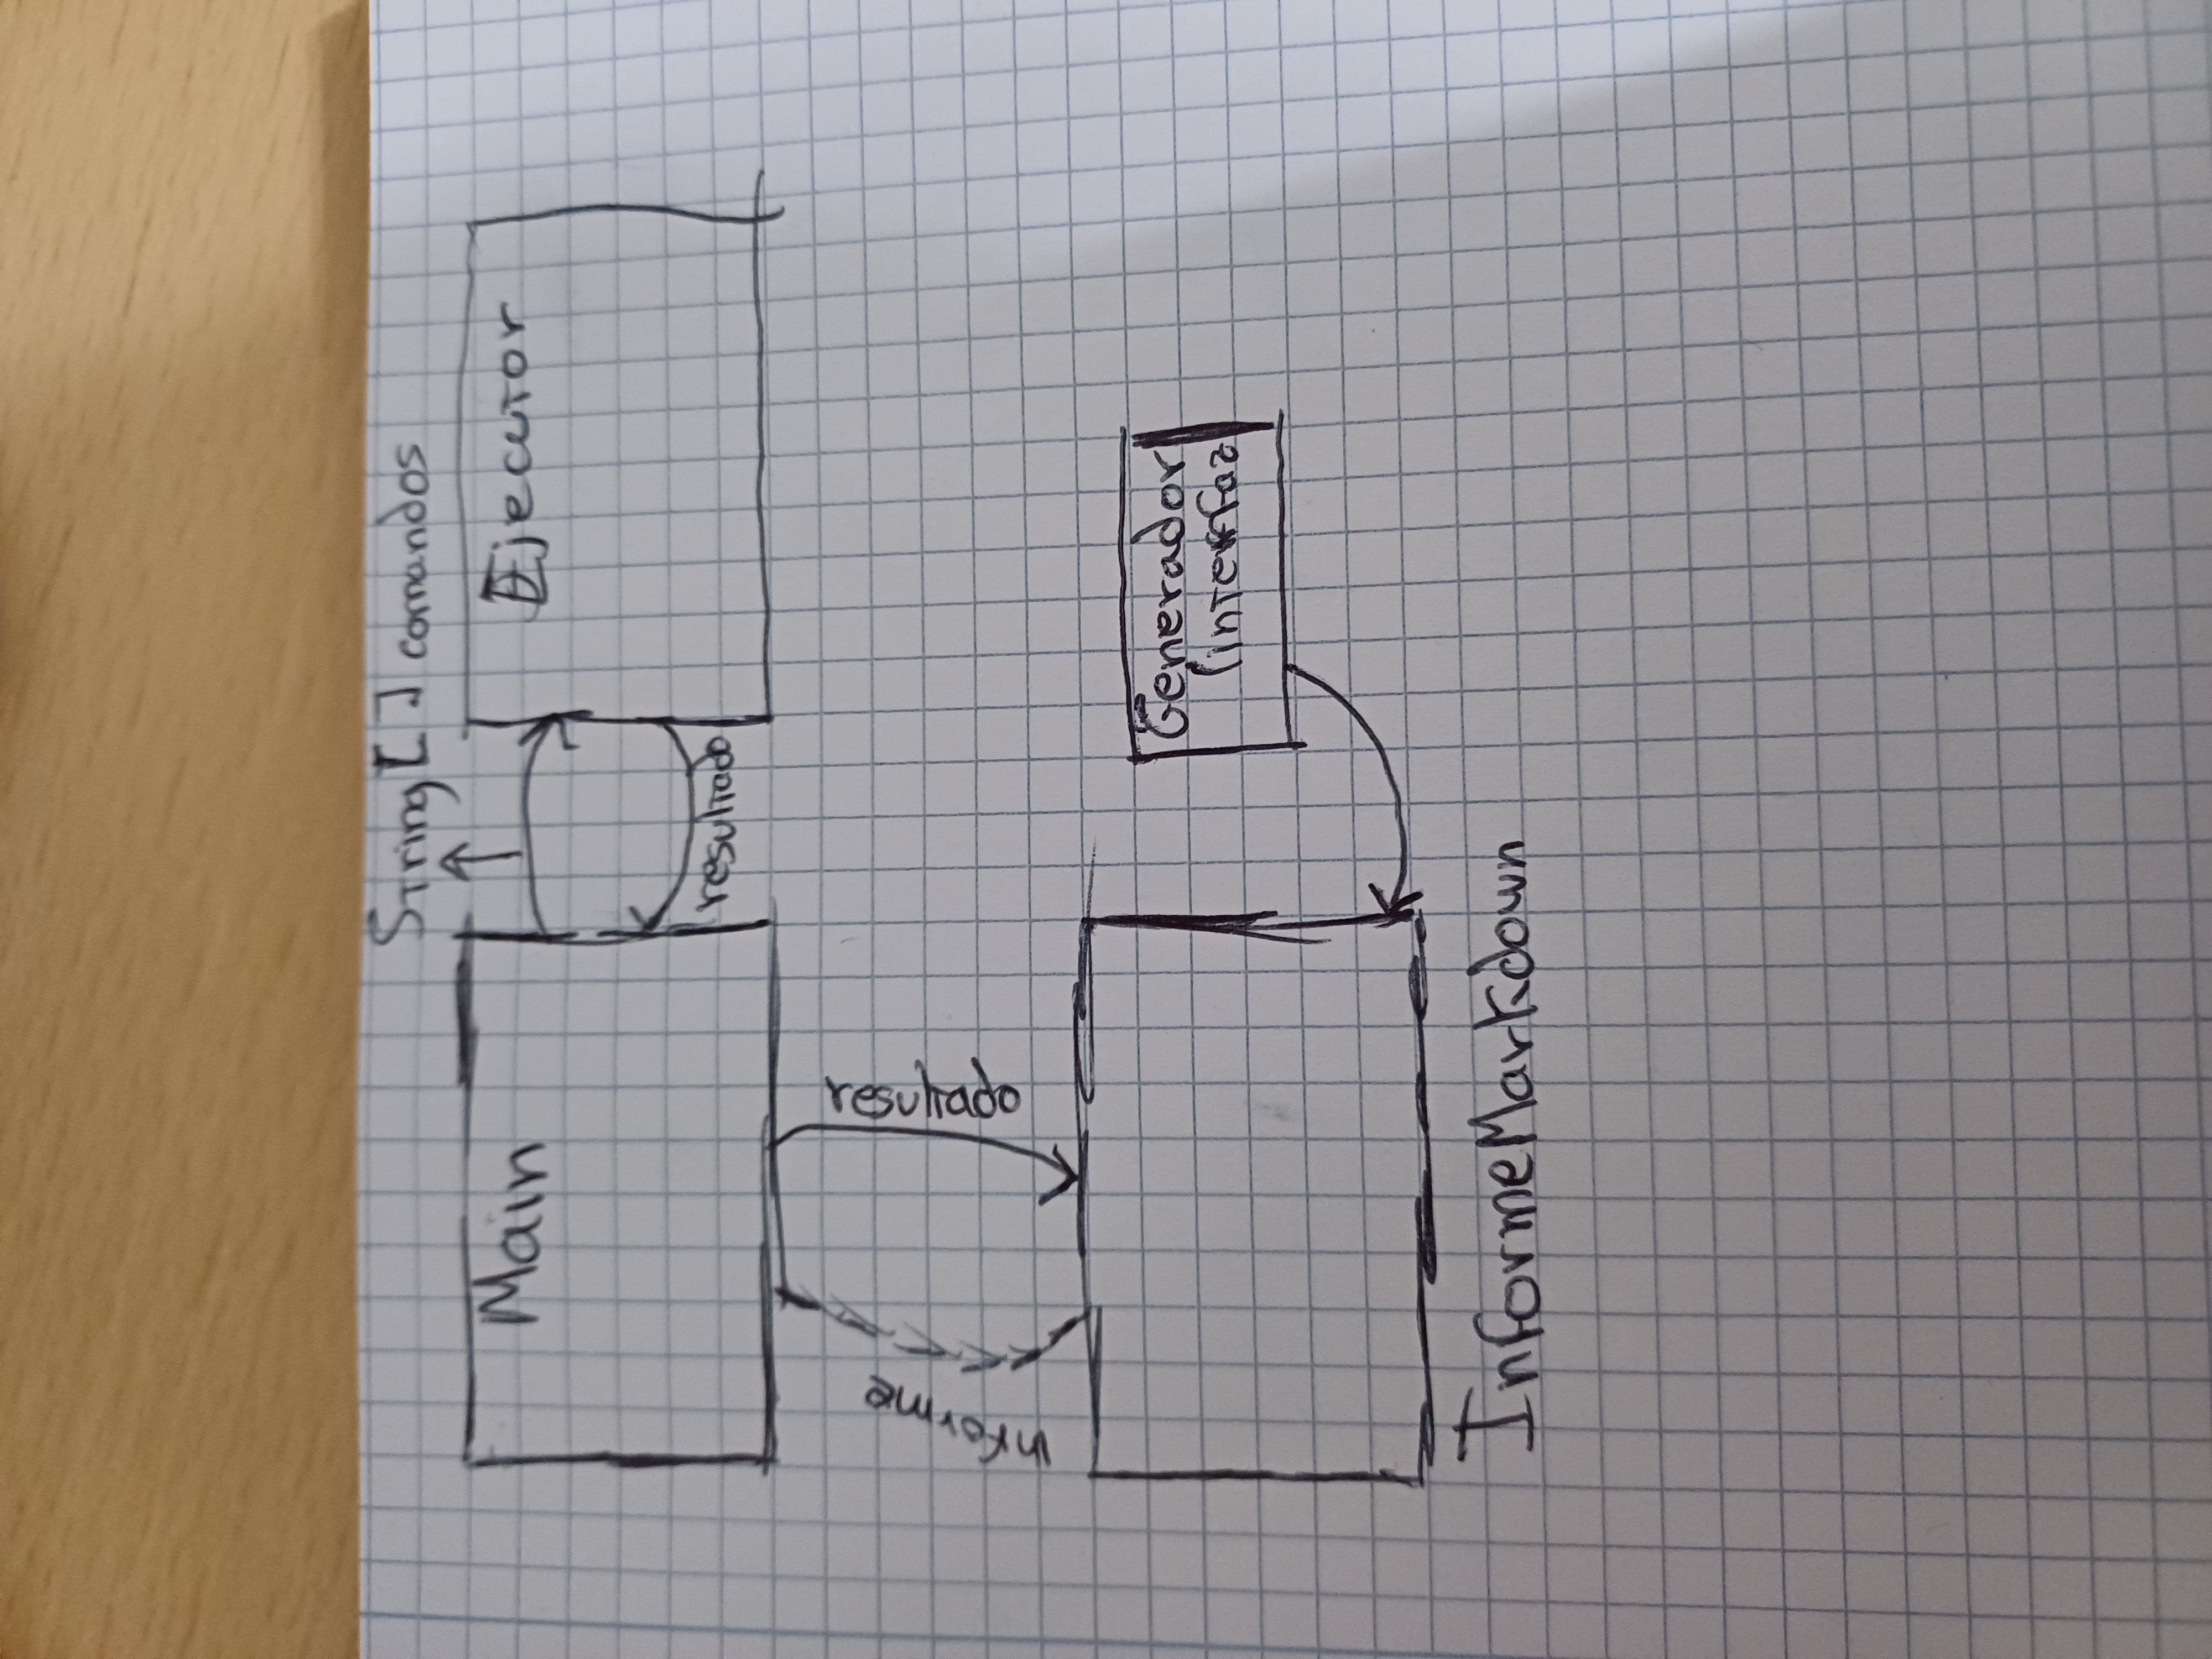 String[] comandos
Main
Ejecutor
resultado
resultado
informe
Generador
(interfaz
InformeMarkdown